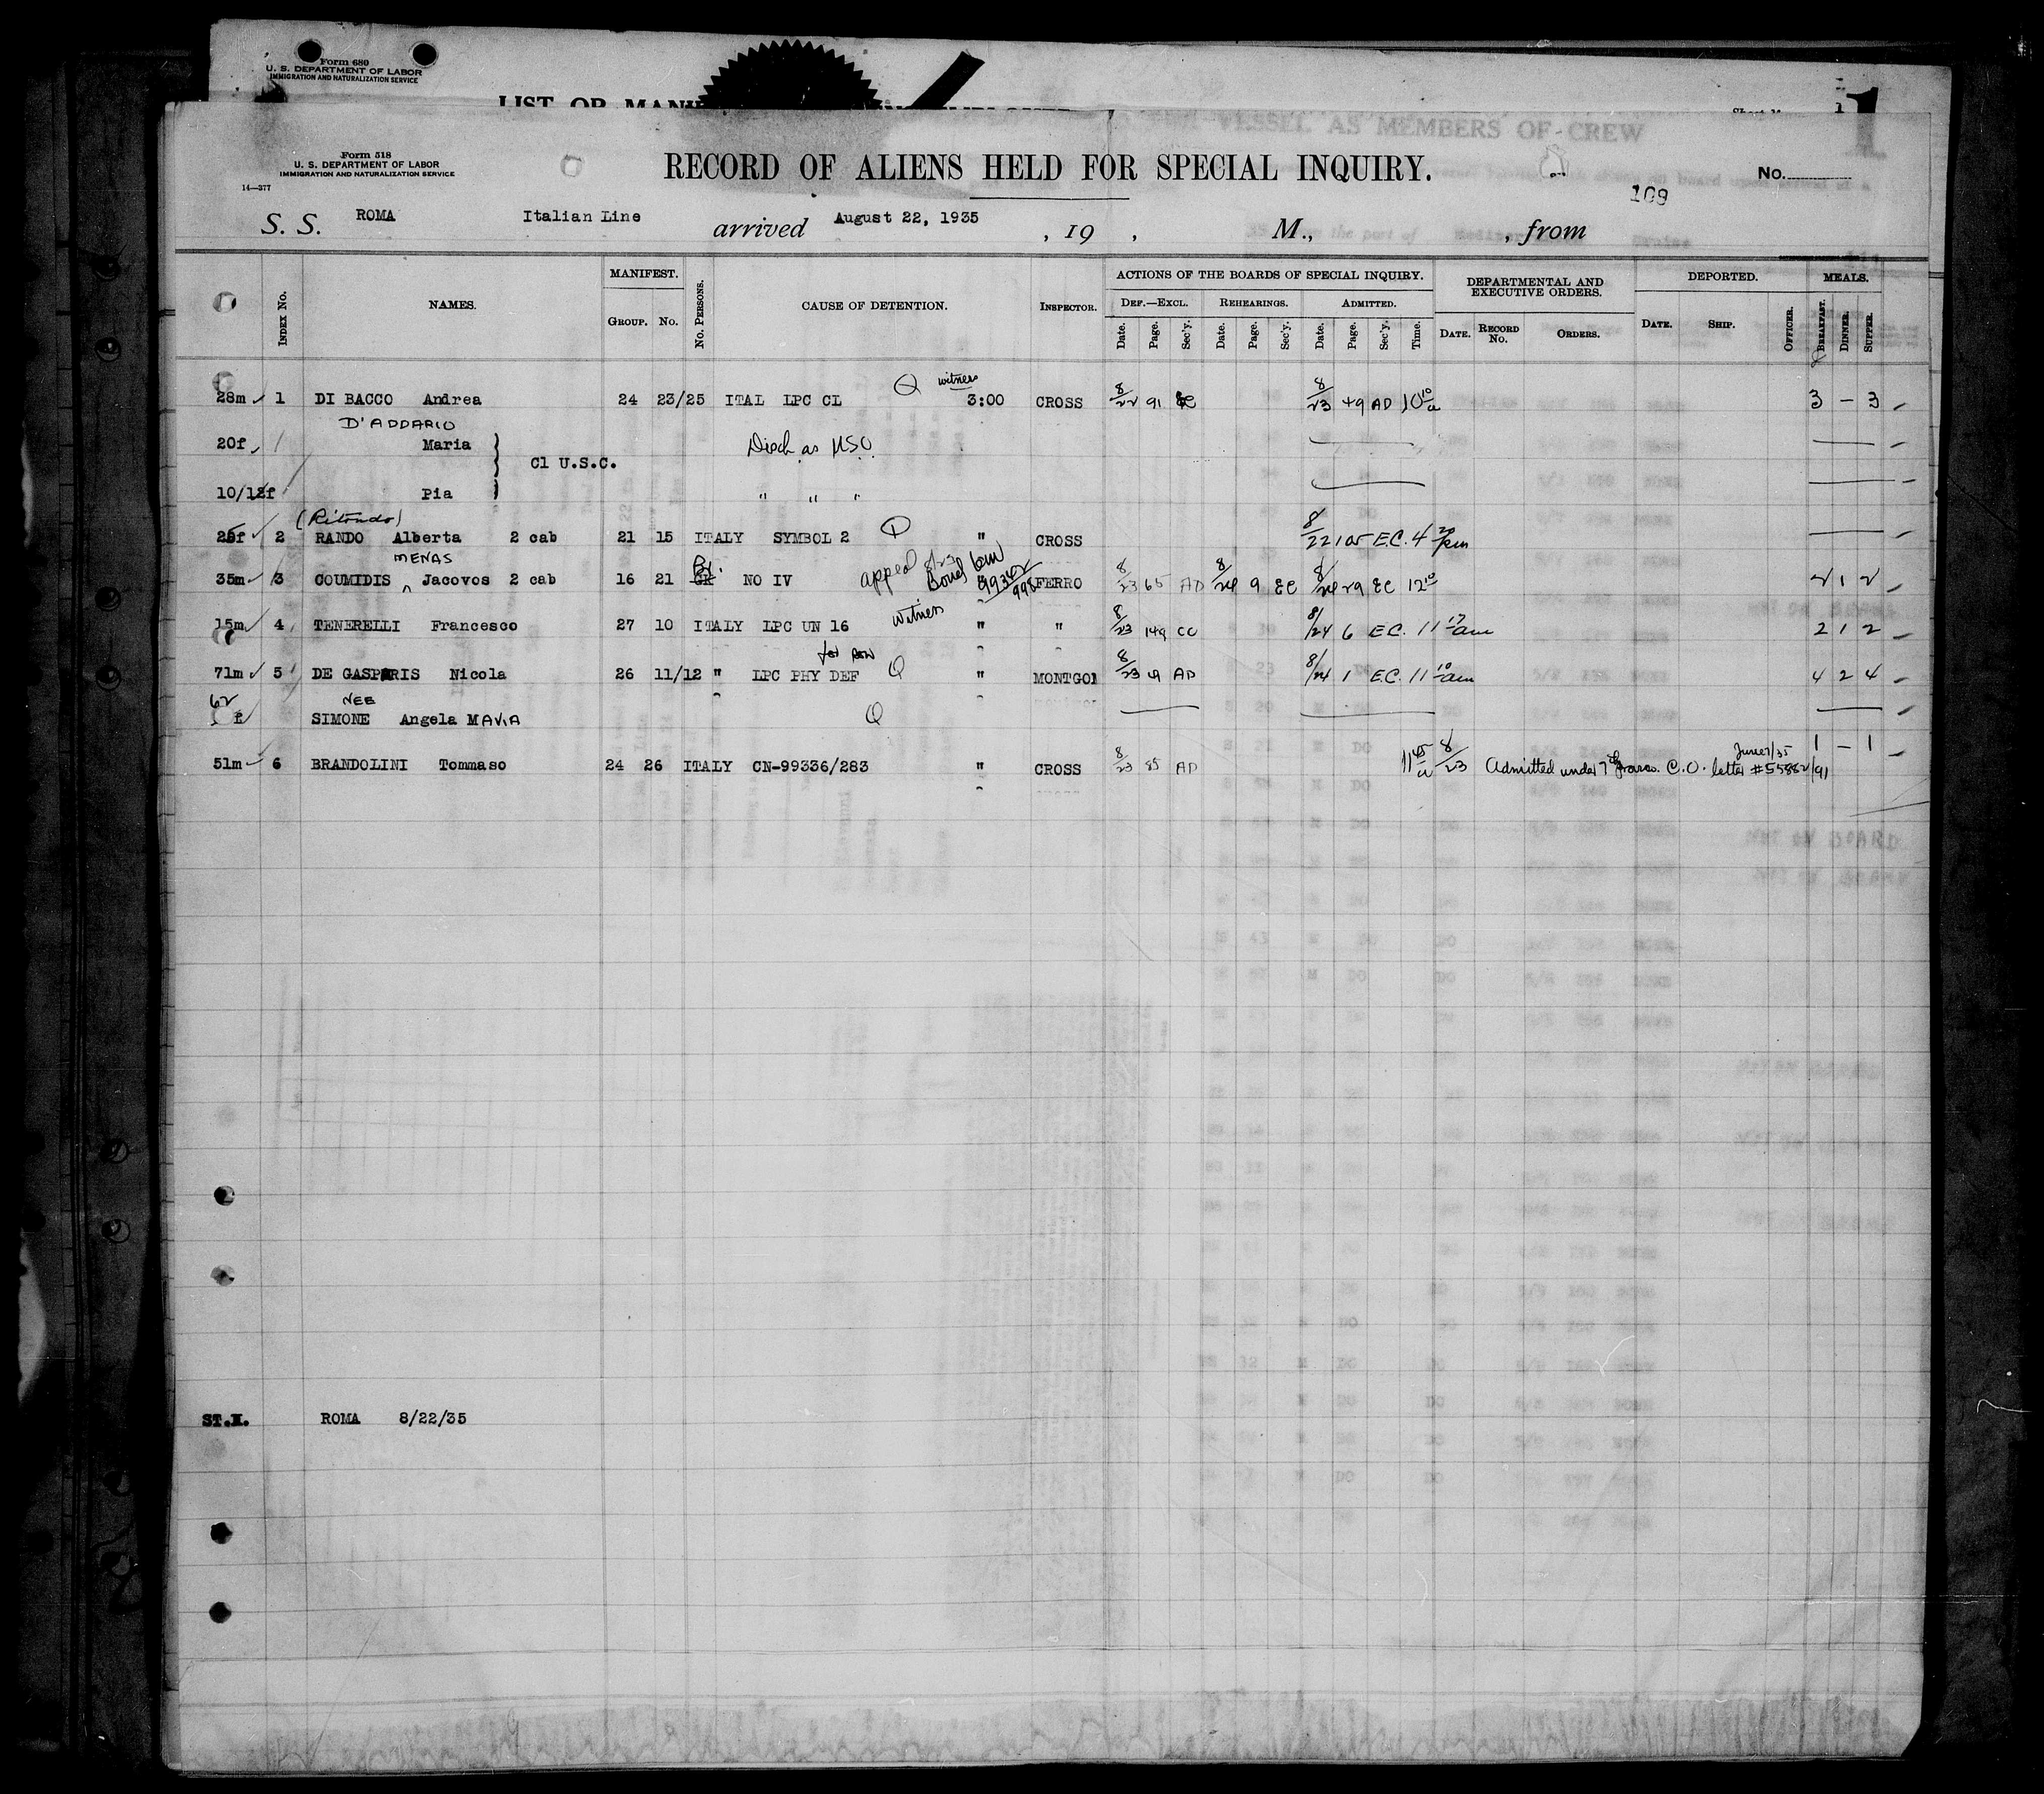 Form 680
U. S. DEPARTMENT OF LABOR
IMMIGRATION AND NATURALIZATION SERVICE
LIST OR MANI
1
VESSEL AS MEMBERS OF CREW
Form 518
U. S. DEPARTMENT OF LABOR
IMMIGRATION AND NATURALIZATION SERVICE
14—377
RECORD OF ALIENS HELD FOR SPECIAL INQUIRY.
No.
109
S. S. ROMA Italian Line arrived August 22, 1935 , 19 , M., , from
INDEX No. NAMES. MANIFEST. GROUP. No. No. PERSONS. CAUSE OF DETENTION. INSPECTOR. ACTIONS OF THE BOARDS OF SPECIAL INQUIRY. DEF.—EXCL. REHEARINGS. ADMITTED. DEPARTMENTAL AND EXECUTIVE ORDERS. DEPORTED. MEALS.
Date. Page. Sec'y. Date. Page. Sec'y. Date. Page. Sec'y. Time. DATE. RECORD No. ORDERS. DATE. SHIP. OFFICER. BREAKFAST. DINNER. SUPPER.
witness
28m 1 DI BACCO Andrea 24 23/25 ITAL LPC CL Q 3:00 CROSS 8/22 91 8/23 49 AD 10 10 a 3 – 3
D'ADDARIO
20f Maria Disch as USC
Cl U.S.C.
10/12f Pia " " "
(Ritondo)
2 RANDO Alberta 2 cab 21 15 ITALY SYMBOL 2 " CROSS 8/22 105 E.C. 4 20 pm
MENAS
35m 3 COUMIDIS Jacovos 2 cab 16 21 Br. GR NO IV appeal 8/23 Bond 99342/998 FERRO 8/23 65 AD 8/24 9 EC 8/24 29 EC 12 10 2 1 2
15m 4 TENERELLI Francesco 27 10 ITALY LPC UN 16 witness " " 8/23 149 CC 8/24 6 E.C. 11 17 am 2 1 2
71m 5 DE GASPARIS Nicola 26 11/12 " LPC PHY DEF Q " MONTGOM 8/23 19 AD 8/24 1 E.C. 11 10 am 4 2 4
62 f NEE
SIMONE Angela MARIA Q
51m 6 BRANDOLINI Tommaso 24 26 ITALY CN-99336/283 " CROSS 8/23 85 AD 11 45 a 8/23 Admitted under 7th Proviso. C.O. letter #55882/91 June 7/35 1 – 1
ST.I. ROMA 8/22/35